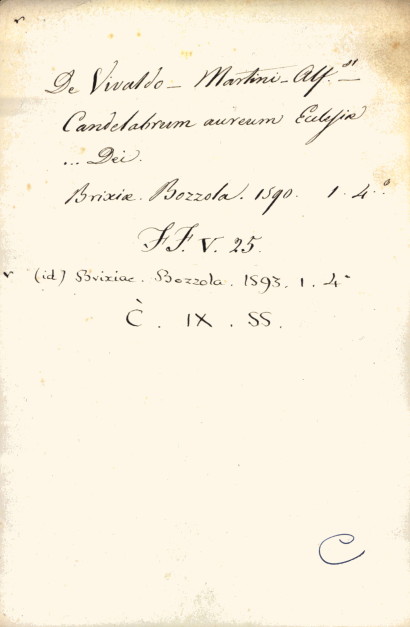 De Vivaldo - Martini - Alf.us -
Candelabrum aureum Eclesiæ
... Dei.
Brixiæ. Bozzola. 1590. 1. 4.º
FF. V. 25.
(id) Brixiae. Bozzola. 1593. 1. 4º
C̀. IX. SS.
C